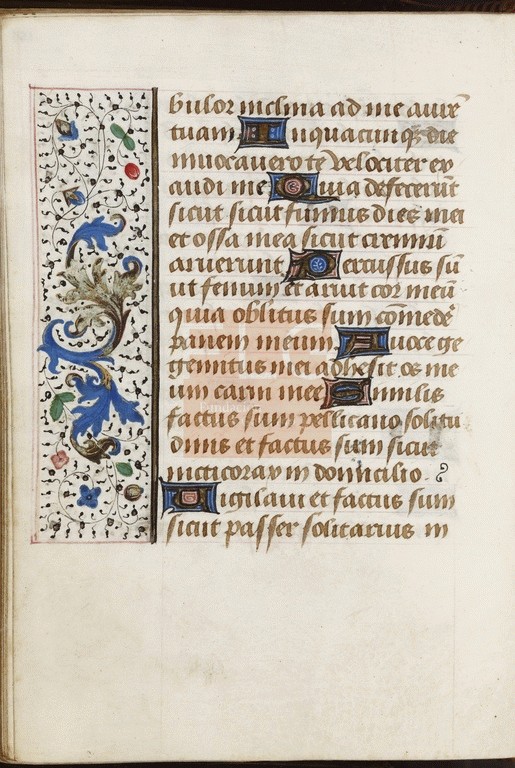 bulor inclina ad me aurē
tuam In quacunqꝫ die
invocavero te velociter ex
audi me Quia defecerūt
sicut sicut fumus dies mei
et ossa mea sicut cremiū
aruerunt Percussus sū
ut fenum et aruit cor meū
quia oblitus sum cōmedē
panem meum A voce ge
gemitus mei adhesit os me
um carni mee Similis
factus sum pellicano solitu
dinis et factus sum sicut
nicticorax in domicilio
Vigilavi et factus sum
sicut passer solitarius in